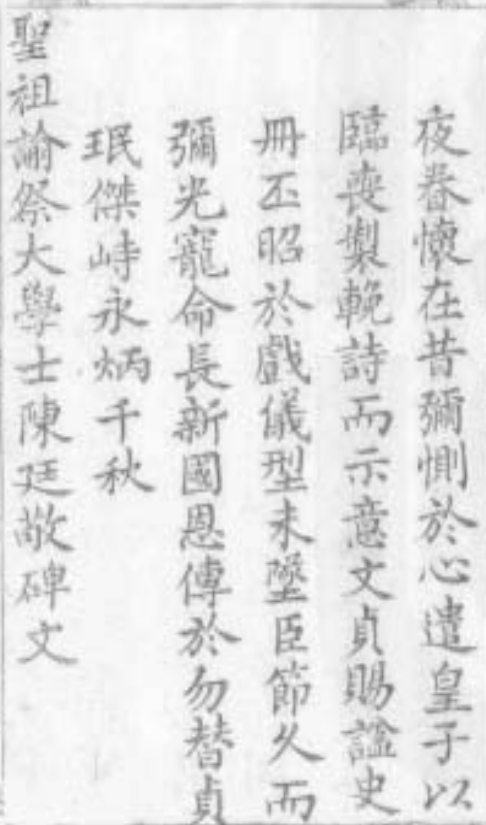 夜眷懷在昔彌惻於心遣皇子以
臨喪製輓詩而示意文貞賜諡史
冊丕昭於戲儀型未墜臣節久而
彌光寵命長新國恩傳於勿替貞
珉傑峙永炳千秋
聖祖諭祭大學士陳廷敬碑文